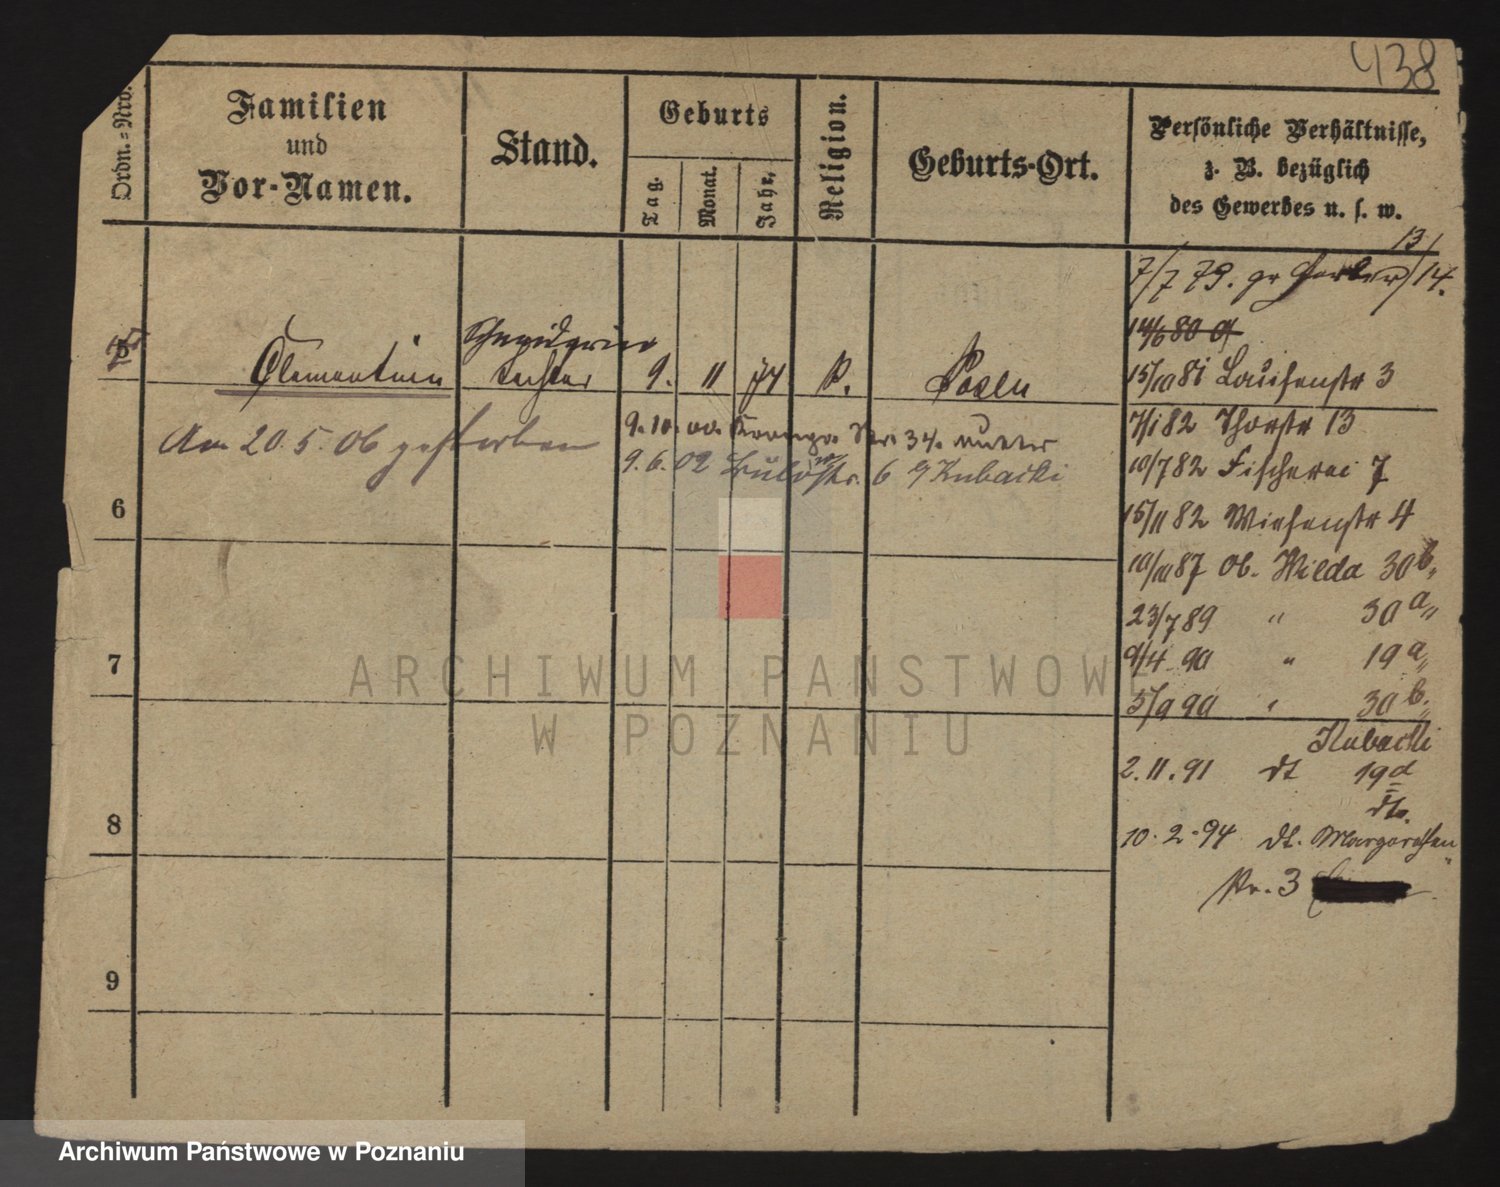 438
Ordn.-Nro.
Familien
und
Vor-Namen.
Stand.
Geburts
Tag.
Monat.
Jahr.
Religion.
Geburts-Ort.
Persönliche Verhältnisse,
z. B. bezüglich
des Gewerbes u. s. w.
13/
7/7 79. gr Gerber/14.
14/6 80
Schneiderin
Clementine
9. 11 74 K. Posen
15/10 81 3
Am 20. 5. 06 gestorben
9. 10. 00. Str. 34.
9. 6. 02 6 Kubacki
7/1 82 Thorstr 13
10/7 82 Fischerei 7
6
15/11 82 Wiesenstr 4
10/10 87 Ob. Wilda 30 b„
23/7 89 " 30 a„
7
9/4 90 " 19 a„
5/9 90 " 30 b„
Kubacki
2. 11. 91 dt 19 d
dto.
8
10. 2. 94 dt. Margarethen
Str. 3
9
ARCHIWUM PAŃSTWOWE
W POZNANIU
Archiwum Państwowe w Poznaniu